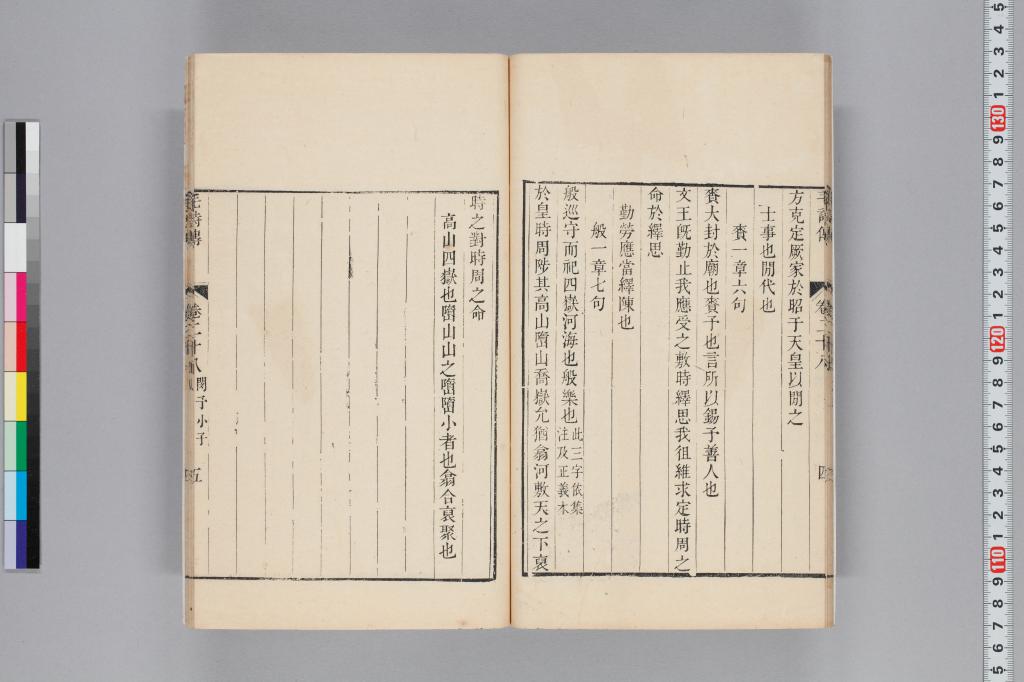 方克定厥家於昭于天皇以閒之
士事也閒代也
賚一章六句
賚大封於廟也賚予也言所以錫予善人也
文王旣勤止我應受之敷時繹思我徂維求定時周之
命於繹思
勤勞應當繹陳也
般一章七句
般巡守而祀四嶽河海也般樂也此三字依集
注及正義本
於皇時周陟其高山嶞山喬嶽允猶翕河敷天之下裒
時之對時周之命
高山四嶽也嶞山山之嶞嶞小者也翕合裒聚也
毛詩傳
卷二十八
閔予小子
五
毛詩傳
卷二十八
四